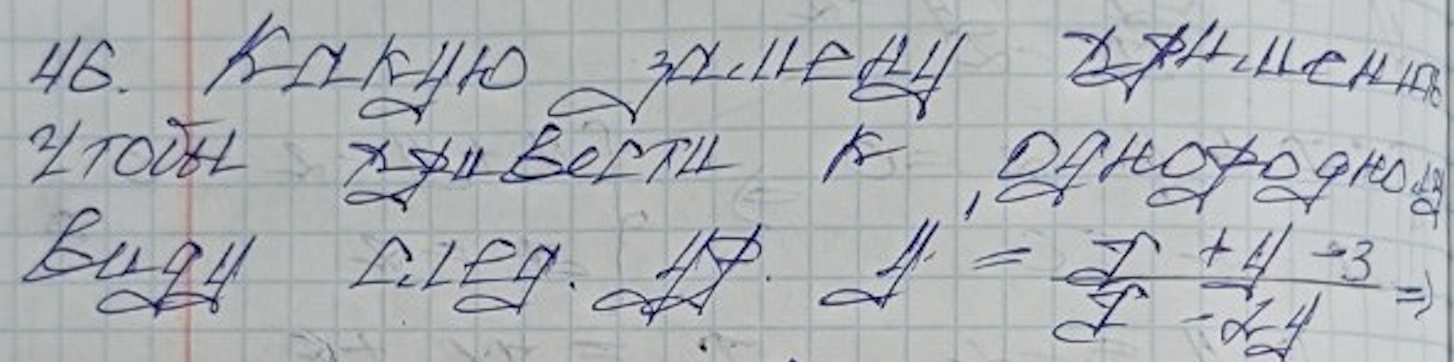 46. Какую замену применить
чтобы привести к однородному
виду след. ур. y' = x + y - 3 / x - 2y =>